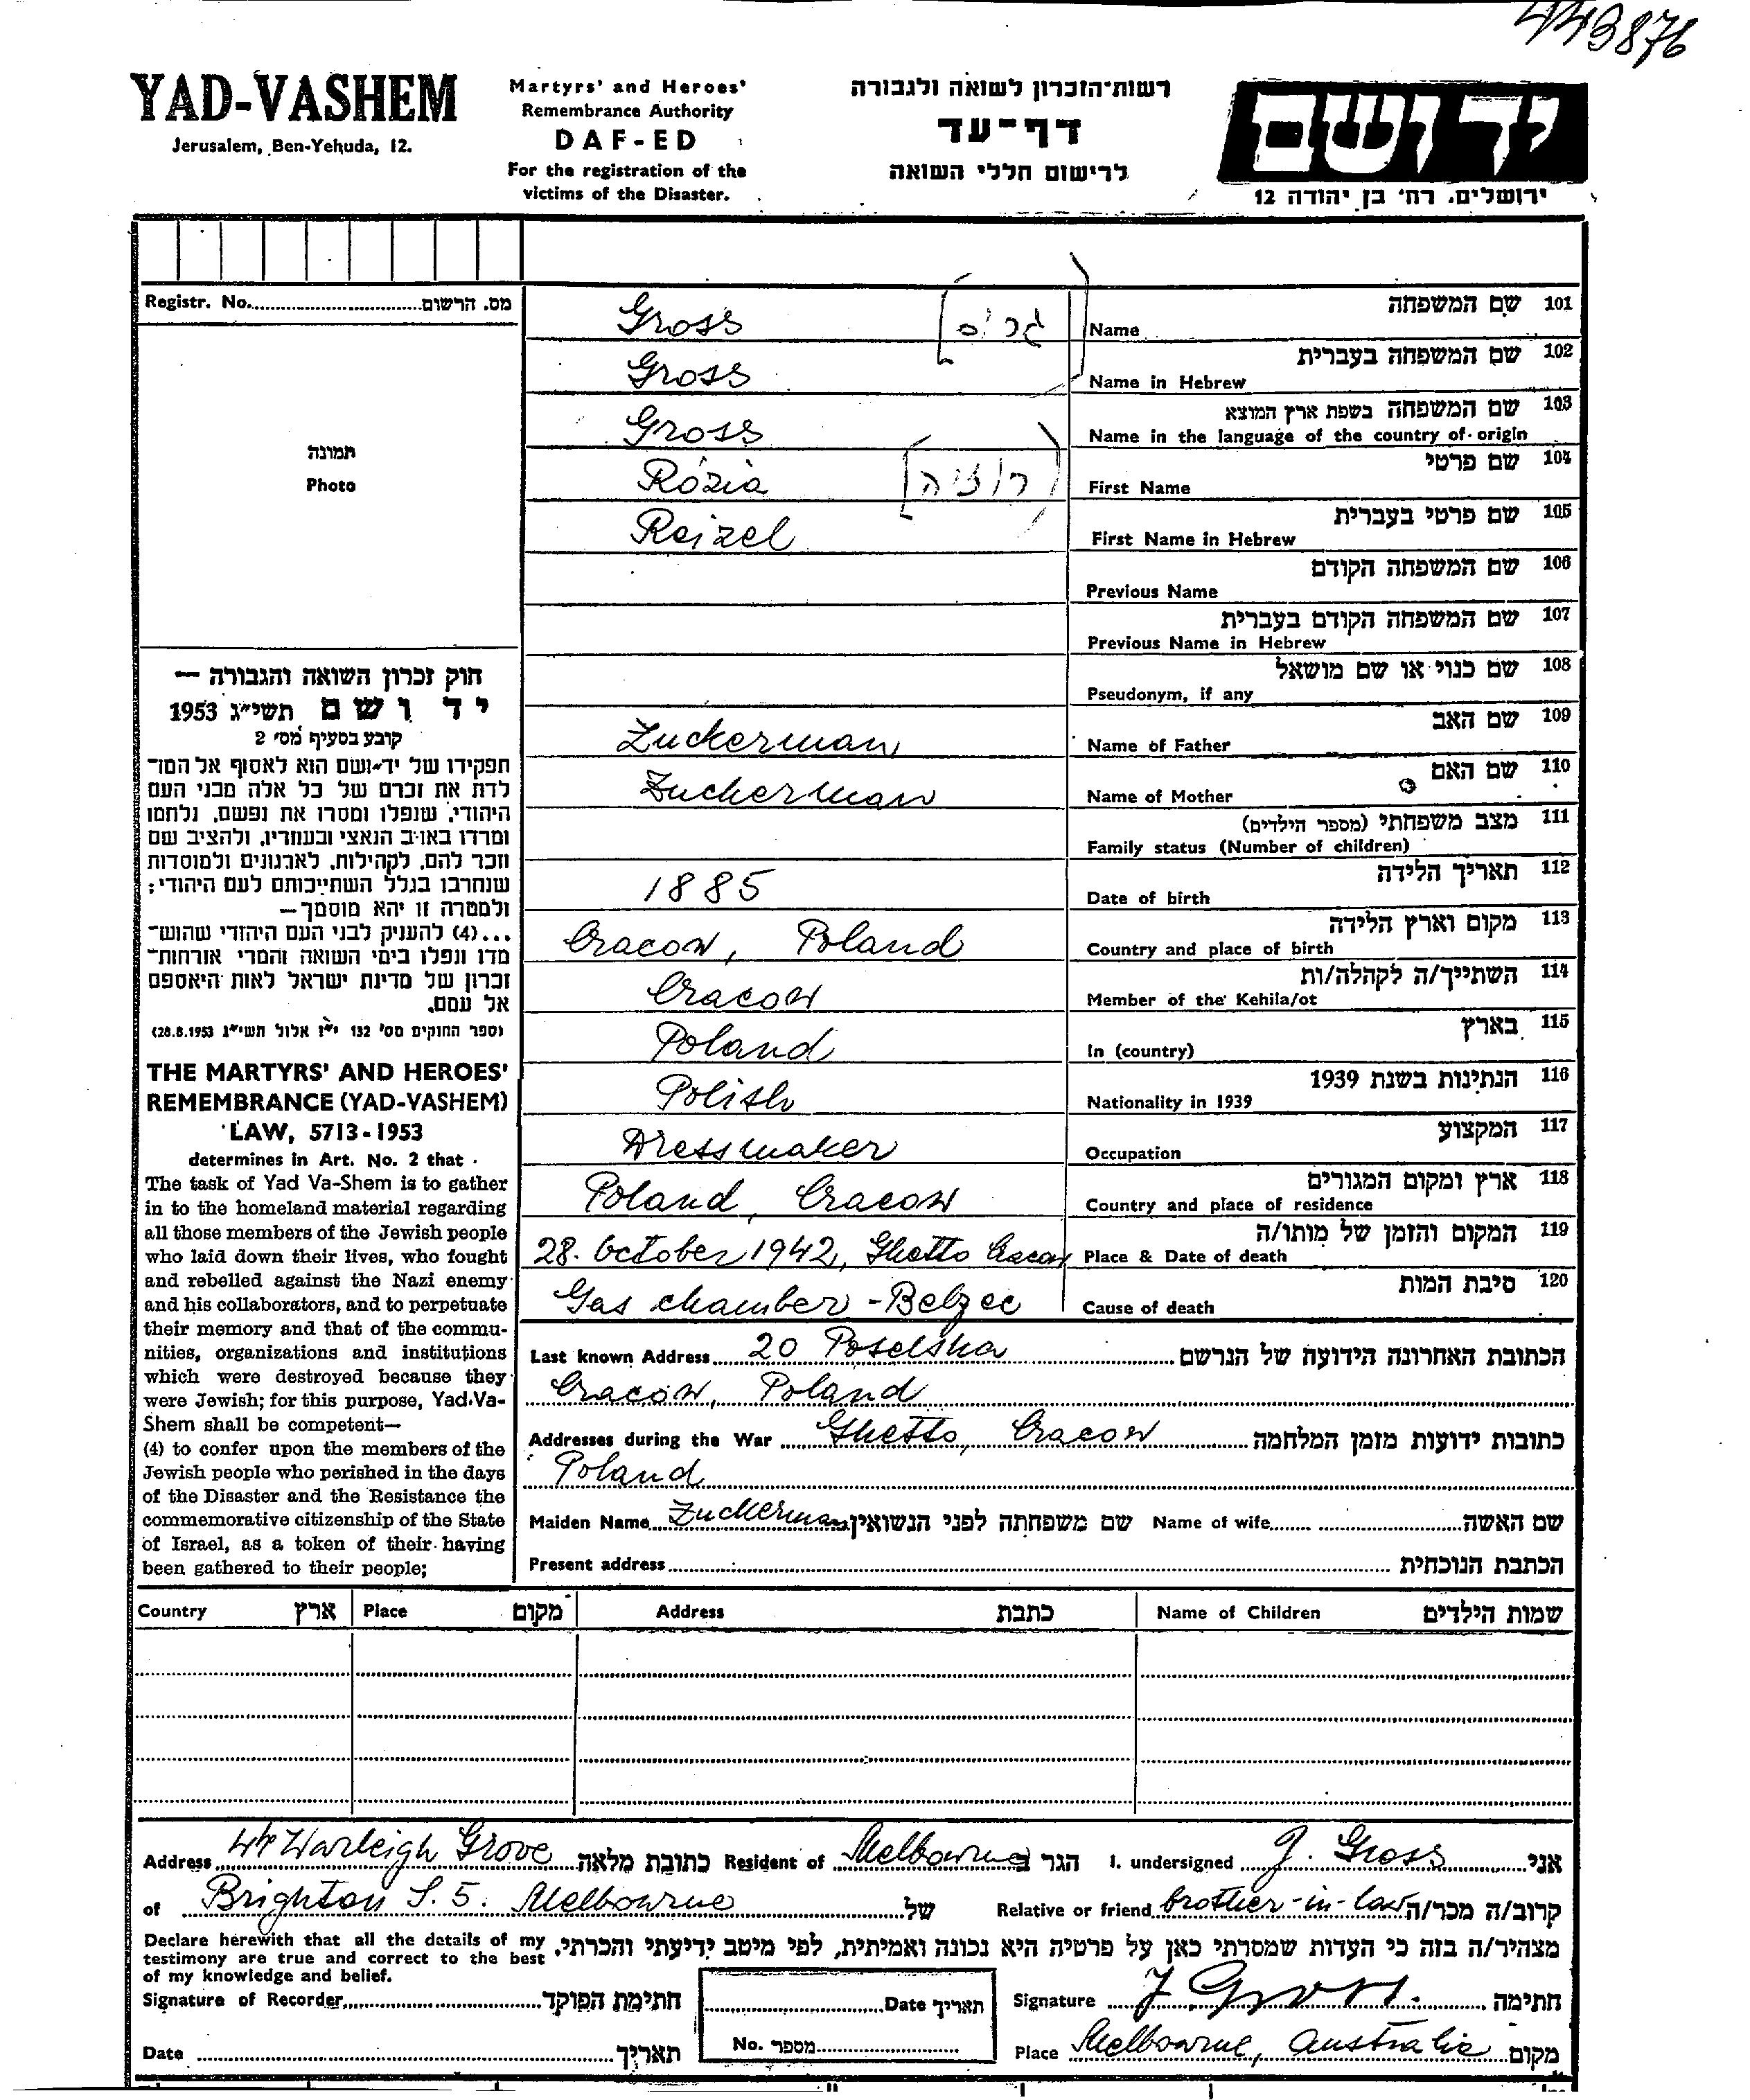 443876
YAD-VASHEM
Jerusalem, Ben-Yehuda, 12.
Martyrs' and Heroes'
Remembrance Authority
DAF-ED
For the registration of the
victims of the Disaster.
רשות־הזכרון לשואה ולגבורה
דף־עד
לרישום חללי השואה
יד ושם
ירושלים, רח' בן יהודה 12
Registr. No. מס. הרשום
תמונה
Photo
Gross [גרוס] Name שם המשפחה 101
Gross Name in Hebrew שם המשפחה בעברית 102
Gross Name in the language of the country of origin שם המשפחה בשפת ארץ המוצא 103
Rózia [רוזיה] First Name שם פרטי 104
Reizel First Name in Hebrew שם פרטי בעברית 105
Previous Name שם המשפחה הקודם 106
Previous Name in Hebrew שם המשפחה הקודם בעברית 107
Pseudonym, if any שם כנוי או שם מושאל 108
Zuckerman Name of Father שם האב 109
Zuckerman Name of Mother שם האם 110
Family status (Number of children) מצב משפחתי (מספר הילדים) 111
1885 Date of birth תאריך הלידה 112
Cracow, Poland Country and place of birth מקום וארץ הלידה 113
Cracow Member of the Kehila/ot השתייך/ה לקהלה/ות 114
Poland In (country) בארץ 115
Polish Nationality in 1939 הנתינות בשנת 1939 116
Dressmaker Occupation המקצוע 117
Poland, Cracow Country and place of residence ארץ ומקום המגורים 118
28. October 1942, Ghetto Cracow Place & Date of death המקום והזמן של מותו/ה 119
Gas chamber - Belzec Cause of death סיבת המות 120
חוק זכרון השואה והגבורה —
יד ושם תשי״ג 1953
קובע בסעיף מס' 2
תפקידו של יד־ושם הוא לאסוף אל המו־
לדת את זכרם של כל אלה מבני העם
היהודי, שנפלו ומסרו את נפשם, נלחמו
ומרדו באויב הנאצי ובעוזריו, ולהציב שם
וזכר להם, לקהילות, לארגונים ולמוסדות
שנחרבו בגלל השתייכותם לעם היהודי;
ולמטרה זו יהא מוסמך—
...(4) להעניק לבני העם היהודי שהוש־
מדו ונפלו בימי השואה והמרי אזרחות־
זכרון של מדינת ישראל לאות היאספם
אל עמם.
(ספר החוקים מס' 132 י״ז אלול תשי״ג 28.8.1953)
THE MARTYRS' AND HEROES'
REMEMBRANCE (YAD-VASHEM)
LAW, 5713-1953
determines in Art. No. 2 that
The task of Yad Va-Shem is to gather
in to the homeland material regarding
all those members of the Jewish people
who laid down their lives, who fought
and rebelled against the Nazi enemy
and his collaborators, and to perpetuate
their memory and that of the commu-
nities, organizations and institutions
which were destroyed because they
were Jewish; for this purpose, Yad-Va-
Shem shall be competent—
(4) to confer upon the members of the
Jewish people who perished in the days
of the Disaster and the Resistance the
commemorative citizenship of the State
of Israel, as a token of their having
been gathered to their people;
Last known Address 20 Poselska הכתובת האחרונה הידועה של הנרשם
Cracow, Poland
Addresses during the War Ghetto, Cracow כתובות ידועות מזמן המלחמה
Poland
Maiden Name Zuckerman שם משפחתה לפני הנשואין Name of wife שם האשה
Present address הכתבת הנוכחית
Country ארץ Place מקום Address כתבת Name of Children שמות הילדים
Address Warleigh Grove כתובת מלאה Resident of Melbourne הגר ב I. undersigned J. Gross אני
of Brighton S. 5. Melbourne של Relative or friend brother-in-law קרוב/ה מכר/ה
Declare herewith that all the details of my
testimony are true and correct to the best
of my knowledge and belief.
מצהיר/ה בזה כי העדות שמסרתי כאן על פרטיה היא נכונה ואמיתית, לפי מיטב ידיעתי והכרתי.
Signature of Recorder חתימת הפוקד Date תאריך Signature J Gross. חתימה
Date תאריך No. מספר Place Melbourne, Australia מקום